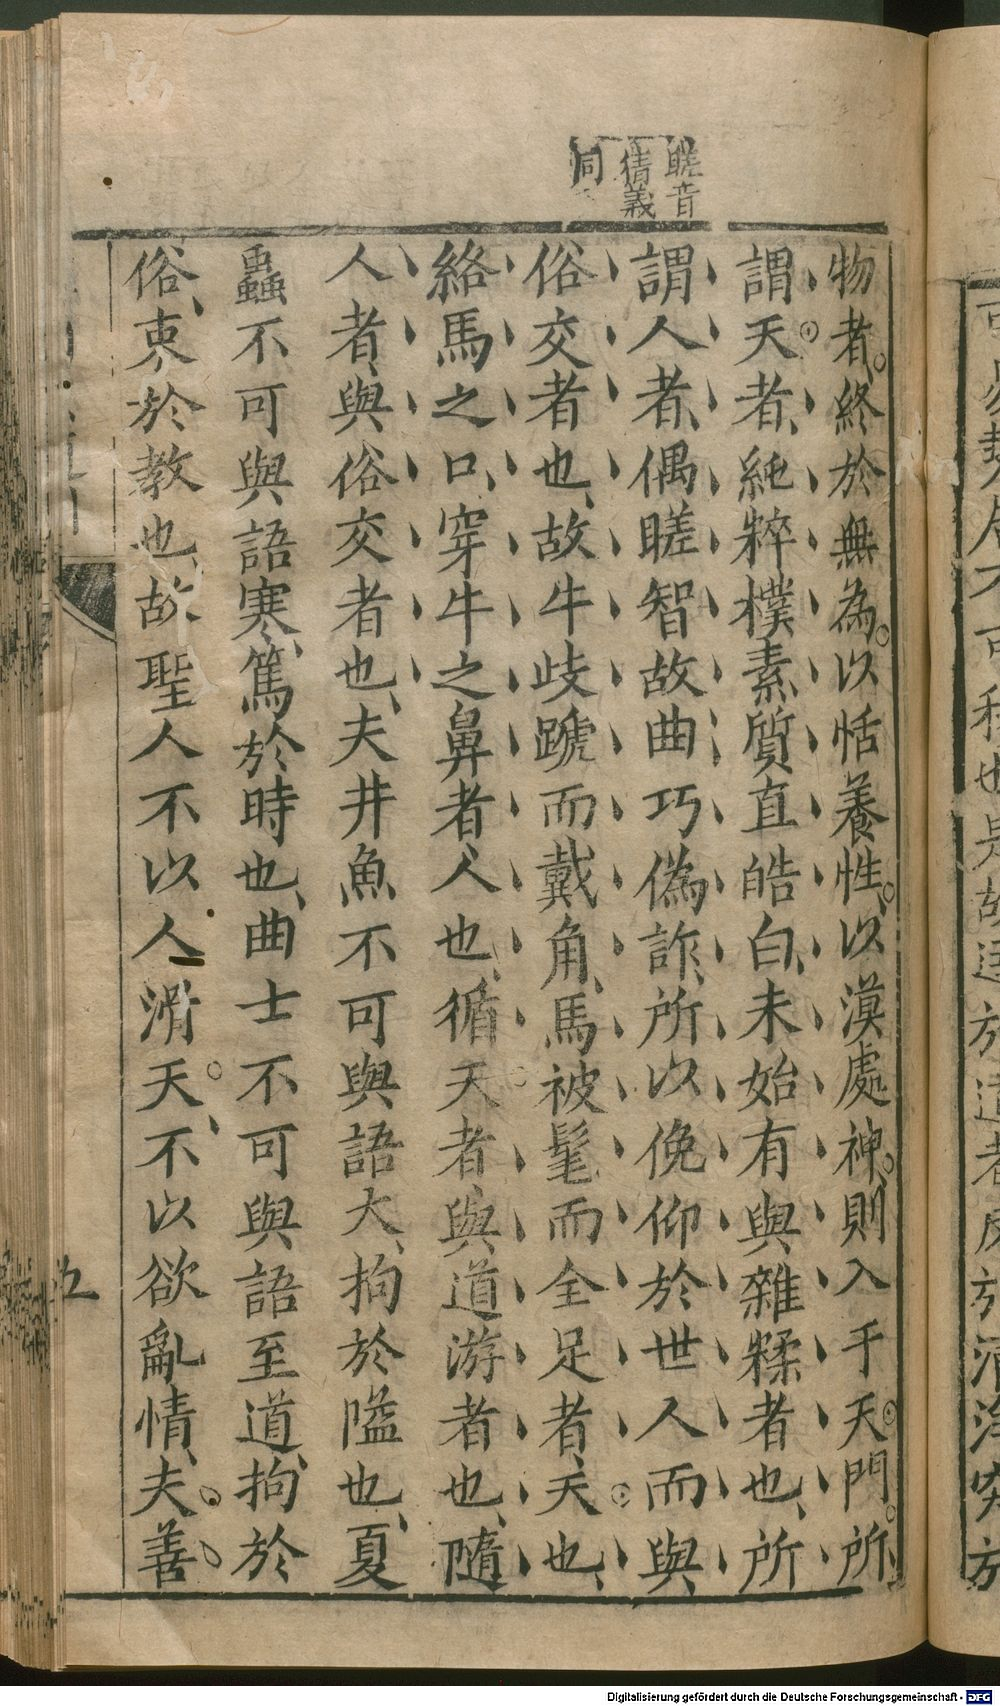 䁟音
猜義
同
物者終於無為以恬養性以漠處神則入于天門所
謂天者純粹樸素質直皓白未始有與雜糅者也所
謂人者偶䁟智故曲巧偽詐所以俛仰於世人而與
俗交者也故牛歧蹏而戴角馬被髦而全足者天也
絡馬之口穿牛之鼻者人也循天者與道游者也隨
人者與俗交者也夫井魚不可與語大拘於隘也夏
蟲不可與語寒篤於時也曲士不可與語至道拘於
俗束於教也故聖人不以人滑天不以欲亂情夫善
五
Digitalisierung gefördert durch die Deutsche Forschungsgemeinschaft - DFG